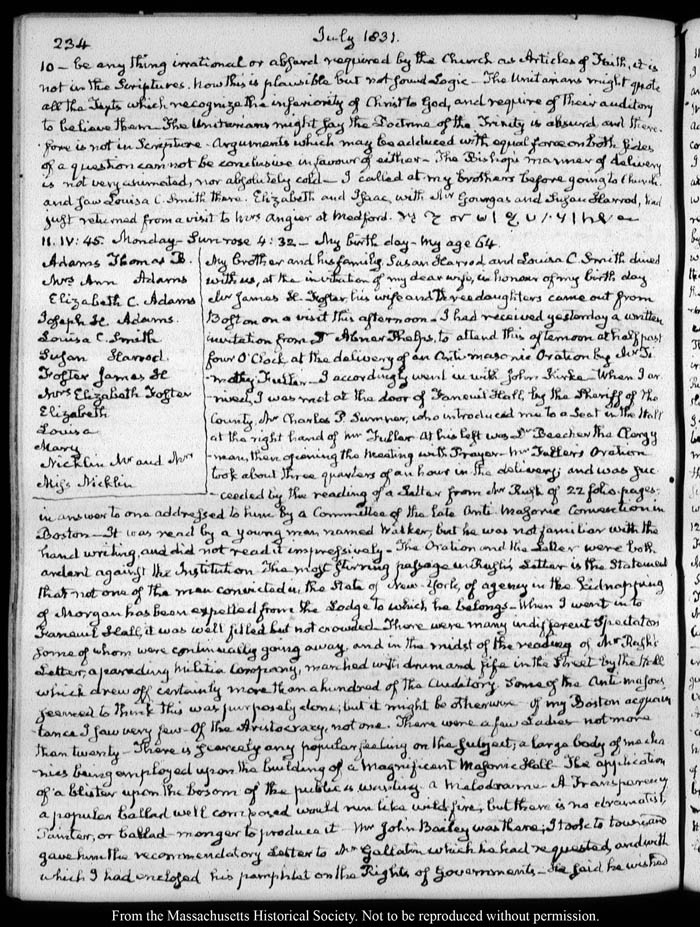 234
July 1831.
10 – be any thing irrational or absurd required by the Church as Articles of Faith, it is
not in the Scriptures. Now this is plausible but not sound Logic – The Unitarians might quote
all the Texts which recognize the inferiority of Christ to God, and require of their auditory
to believe them – The Unitarians might say the Doctrine of the Trinity is absurd and there-
fore is not in Scripture – Arguments which may be adduced with equal force on both sides
of a question can not be conclusive in favour of either – The Bishop's manner of delivery
is not very animated, nor absolutely cold – I called at my brothers before going to Church
and saw Louisa C. Smith there. Elizabeth and Isaac, with Mr Gourgas and Susan Harrod, had
just returned from a visit to Mrs Angier at Medford.
11. IV: 45. Monday – Sun rose 4:32 – My birth day – My age 64.
Adams Thomas B.
Mrs Ann Adams
Elizabeth C. Adams
Joseph H. Adams.
Louisa C. Smith
Susan Harrod.
Foster James H
Mrs Elizabeth Foster
Elizabeth
Louisa
Mary
Nicklin Mr and Mrs
Miss Nicklin
My brother and his family, Susan Harrod and Louisa C. Smith dined
with us, at the invitation of my dear wife, in honour of my birth day
Mr James H. Foster, his wife and three daughters came out from
Boston on a visit this afternoon – I had received yesterday a written
invitation from Dr Abner Phelps, to attend this afternoon at half past
four O'Clock at the delivery of an Anti-masonic Oration by Mr Ti-
mothy Fuller – I accordingly went in with John Kirke – When I ar-
rived, I was met at the door of Faneuil Hall, by the Sheriff of the
County, Mr Charles P. Sumner, who introduced me to a Seat in the Hall
at the right hand of Mr Fuller. At his left was Dr Beecher the Clergy-
man, then opening the Meeting with Prayer – Mr Fullers Oration
took about three quarters of an hour in the delivery; and was suc-
ceeded by the reading of a Letter from Mr Rush of 22 folio pages
in answer to one addressed to him by a Committee of the late Anti-Masonic Convention in
Boston – It was read by a young man named Walker, but he was not familiar with the
hand writing, and did not read it impressively – The Oration and the Letter were both
ardent against the Institution – The most stirring passage in Rush's Letter is the Statement
that not one of the men convicted in the State of New-York, of agency in the Kidnapping
of Morgan has been expelled from the Lodge to which he belongs – When I went in to
Faneuil Hall, it was well filled but not crowded – There were many indifferent Spectators
some of whom were continually going away, and in the midst of the reading of Mr Rush's
Letter, a parading Militia Company, marched with drum and fife in the Street by the Hall
which drew off certainly more than a hundred of the Auditory. Some of the Anti masons
seemed to think this was purposely done; but it might be otherwise – Of my Boston acquain-
tance I saw very few – Of the Aristocracy, not one. There were a few Ladies – not more
than twenty – There is scarcely any popular feeling on the subject; a large body of mecha-
nics being employed upon the building of a Magnificent Masonic Hall – The application
of a blister upon the bosom of the public is wanting. A Melodrama – A Transparency
a popular ballad well composed would run like wild fire; but there is no dramatist,
Painter, or ballad-monger to produce it – Mr John Bailey was there; I took to town and
gave him the recommendatory Letter to Mr Gallatin which he had requested, and with
which I had enclosed his pamphlet on the Rights of Governments – He said he wished
From the Massachusetts Historical Society. Not to be reproduced without permission.